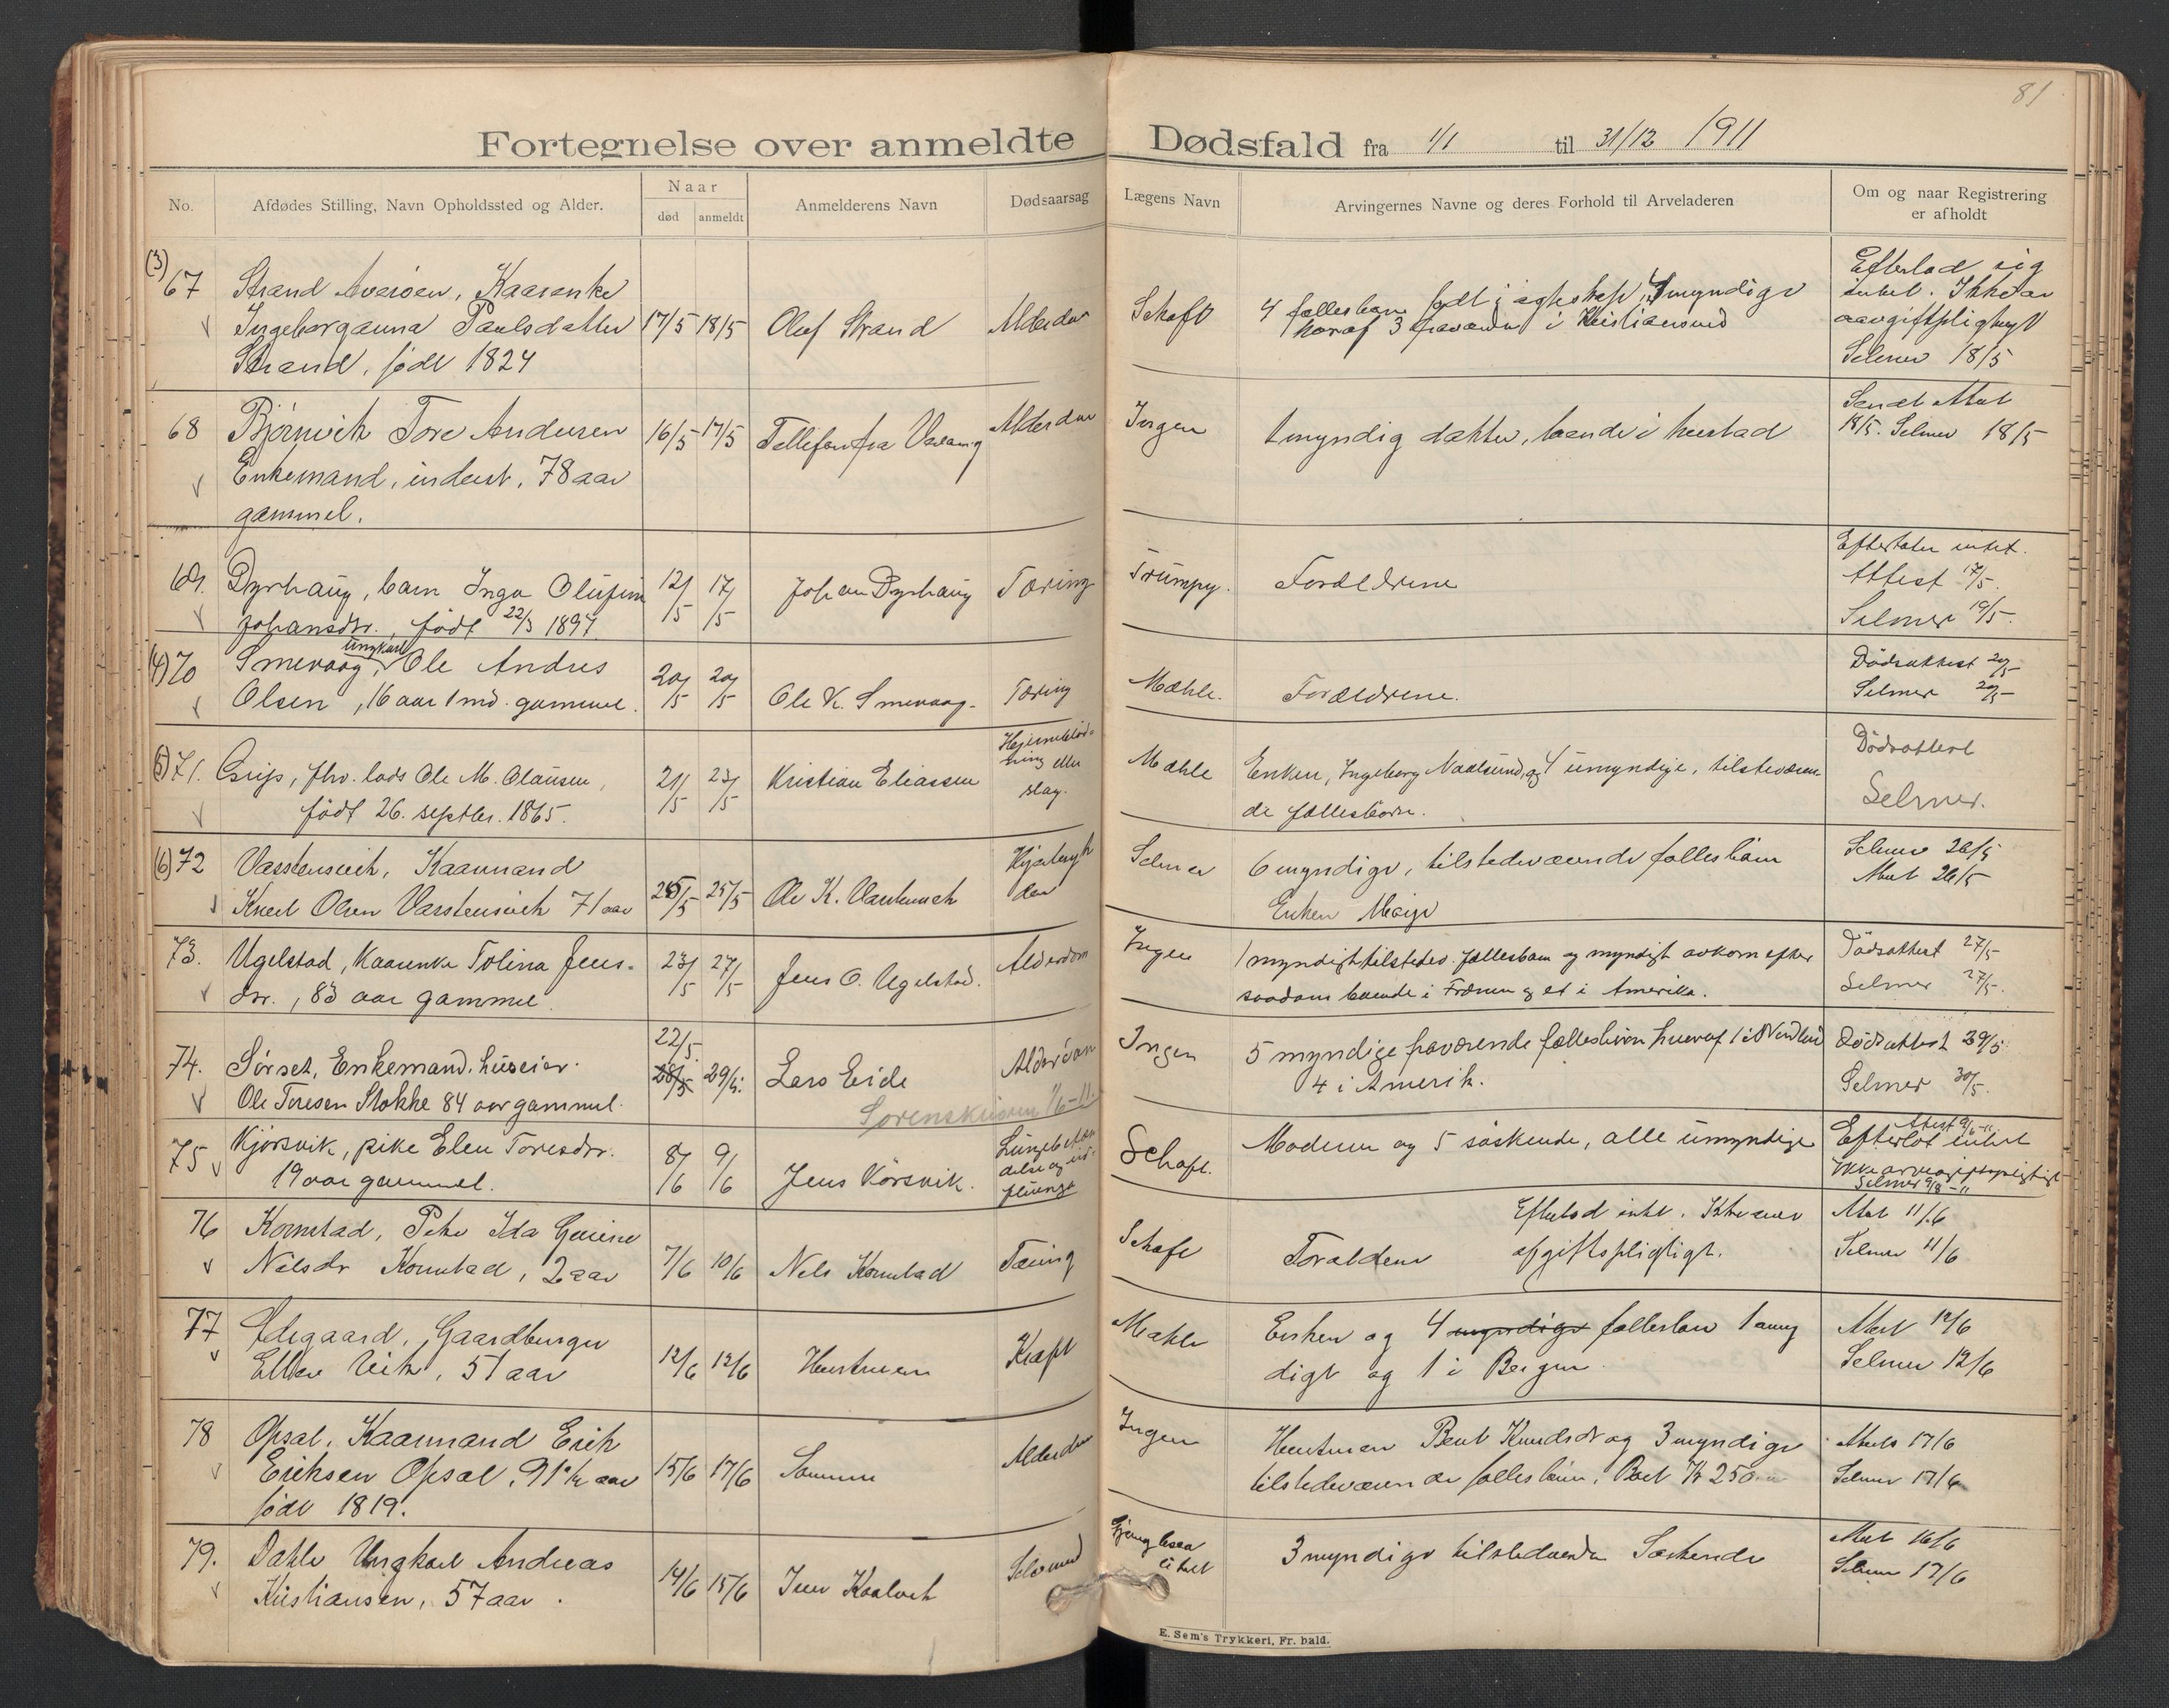 81
Fortegnelse over anmeldte Dødsfald fra 1/1 til 31/12 1911
No.
Afdødes Stilling, Navn Opholdssted og Alder.
Naar
død
anmeldt
Anmelderens Navn
Dødsaarsag
Lægens Navn
Arvingernes Navne og deres Forhold til Arveladeren
Om og naar Registrering
er afholdt
(3)
67
Strand Averøen, Kaarenke
Ingeborganna Paulsdatter
Strand, født 1824
17/5 18/5
Oluf Strand
Alderdom
Schaft
4 fællesbarn født i ægteskap, 4 myndige
hvoraf 3 fraværende i Kristiansund
Efterlod sig
intet. Ikke ar
aavgiftspligtigt
Selmer 18/5
68
Bjørnvik Tore Andersen
Enkemand, inderst, 78 aar
gammel.
16/5 17/5
Tellefon fra Varang
Alderdom
Ingen
1 myndig datter, boende i Hustad
Sendt Attest
18/5. Selmer 18/5
69.
Dyrhaug, barn Inga Olufine
Johansdtr., født 22/3 1897.
12/5 17/5
Johan Dyrhaug
Tæring
Trumpy.
Forældrene
Efterlater intet.
Attest 17/5.
Selmer 19/5.
(4) 70
Smevaag, ungkarl Ole Andres
Olsen, 16 aar 1 md. gammel.
20/5 20/5
Ole K. Smevaag.
Tæring
Mæhle.
Forældrene.
Dødsattest 20/5
Selmer 20/5
(5) 71.
Grip, fhv. lods Ole M. Olausen,
født 26. septbr. 1865.
21/5 23/5
Kristian Eliassen
Hjerneblød-
ning eller
slag.
Mæhle
Enken, Ingeborg Naalsund, og 4 umyndige, tilstedeværen-
de fællesbørn.
Dødsattest
Selmer.
(6) 72
Vasstensvik, Kaarmand
Knut Olsen Vasstensvik 71 aar
25/5 25/5
Ole K. Vasstensvik
Selmer
6 myndige, tilstedeværende fællesbørn
Enken Marie
Selmer 26/5
Attest 26/5
73.
Ugelstad, Kaarenke Tolina Jens-
dtr., 83 aar gammel.
23/5 27/5
Jens O. Ugelstad.
Alderdom
Ingen
1 myndigt tilstedev. fællesbarn og myndigt avkom efter
saadans boende i Fræna og et i Amerika.
Dødsattest 27/5
Selmer 27/5.
74.
Sørset, Enkemand, huseier.
Ole Toresen Stokke 84 aar gammel.
22/5.
28/5 29/5.
Lars Eide
Alderdom
Ingen
5 myndige fraværende fællesbørn hvoraf 1 i Nordland
4 i Amerik.
Dødsattest 29/5
Selmer 30/5.
Sorenskriveren 1/6-11.
75
Kjørsvik, pike Elen Toresdtr.
19 aar gammel.
8/6 9/6
Jens Kørsvik.
Lungebetæn
delse og in-
fluenza
Schaft.
Moderen og 5 søskende, alle umyndige
Attest 9/6-11
Efterlot intet
Ikke arveavgiftspligtigt
Selmer 9/6-11
76
Kornstad, Pike Ida Gurine
Nilsdr Kornstad, 2 aar
7/6 10/6
Nels Kornstad
Tæring
Schaft
Forældrene
Efterlod intet. Ikke arve
afgiftspligtigt.
Attest 11/6
Selmer 11/6
77
Ødegaard, Gaardbruger
Ellen Vik, 51 aar
12/6 12/6
Hustruen
Kræft
Mæhle
Enken og 4 myndige fællesbarn 1 umyn
digt og 1 i Bergen
Attest 12/6
Selmer 12/6
78
Opsal, Kaarmand Erik
Eriksen Opsal, 91 1/2 aar
født 1819.
15/6 17/6
Samme
Alderdom
Ingen
Hustruen Berit Knudsdr og 3 myndige
tilstedeværende fællesbørn, Boet Kr 250
Attest 17/6
Selmer 17/6
79.
Dahle Ungkarl Andreas
Kristiansen, 57 aar.
14/6 15/6
Iver Kaalvik
Selvmord
3 myndige tilstedeværende Søskende
Attest 16/6
Selmer 17/6
E. Sem's Trykkeri, Fr. hald.